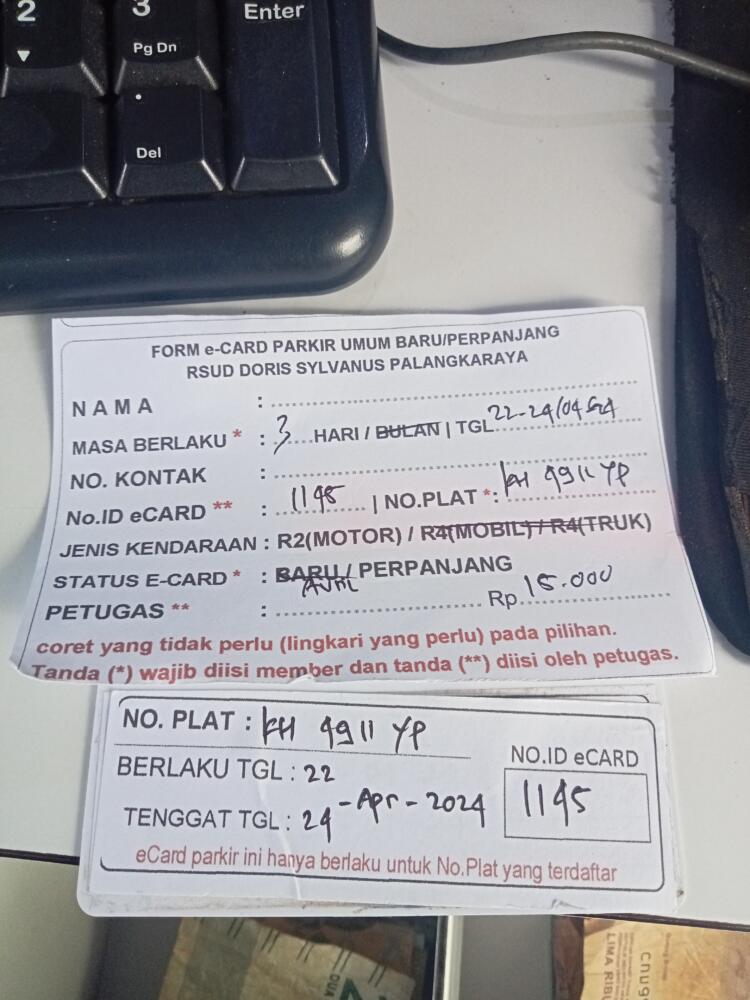 2
3
Pg Dn
Enter
Del
FORM e-CARD PARKIR UMUM BARU/PERPANJANG
RSUD DORIS SYLVANUS PALANGKARAYA
NAMA :
MASA BERLAKU * : 3 HARI / BULAN | TGL 22-24/04
NO. KONTAK :
No.ID eCARD ** : 1195 | NO.PLAT *: KH 4911 YP
JENIS KENDARAAN : R2(MOTOR) / R4(MOBIL) / R4(TRUK)
STATUS E-CARD * : BARU / PERPANJANG
PETUGAS ** : Rp 15.000
coret yang tidak perlu (lingkari yang perlu) pada pilihan.
Tanda (*) wajib diisi member dan tanda (**) diisi oleh petugas.
NO. PLAT : KH 4911 YP
BERLAKU TGL : 22
NO.ID eCARD
TENGGAT TGL : 24 - Apr - 2024
1195
eCard parkir ini hanya berlaku untuk No.Plat yang terdaftar
DUA
LIMA RIBU